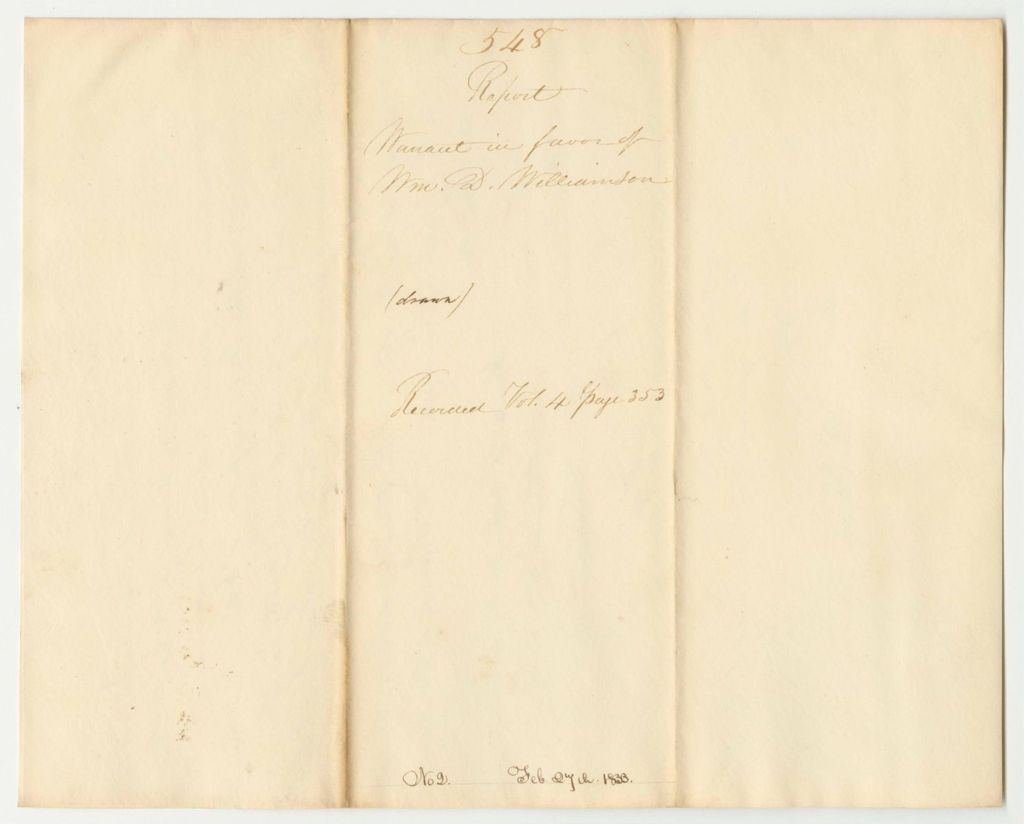 548
Report
Warrant in favor of
Wm. D. Williamson
(drawn)
Recorded Vol. 4 page 353
No 2. Feb 27th. 1833.